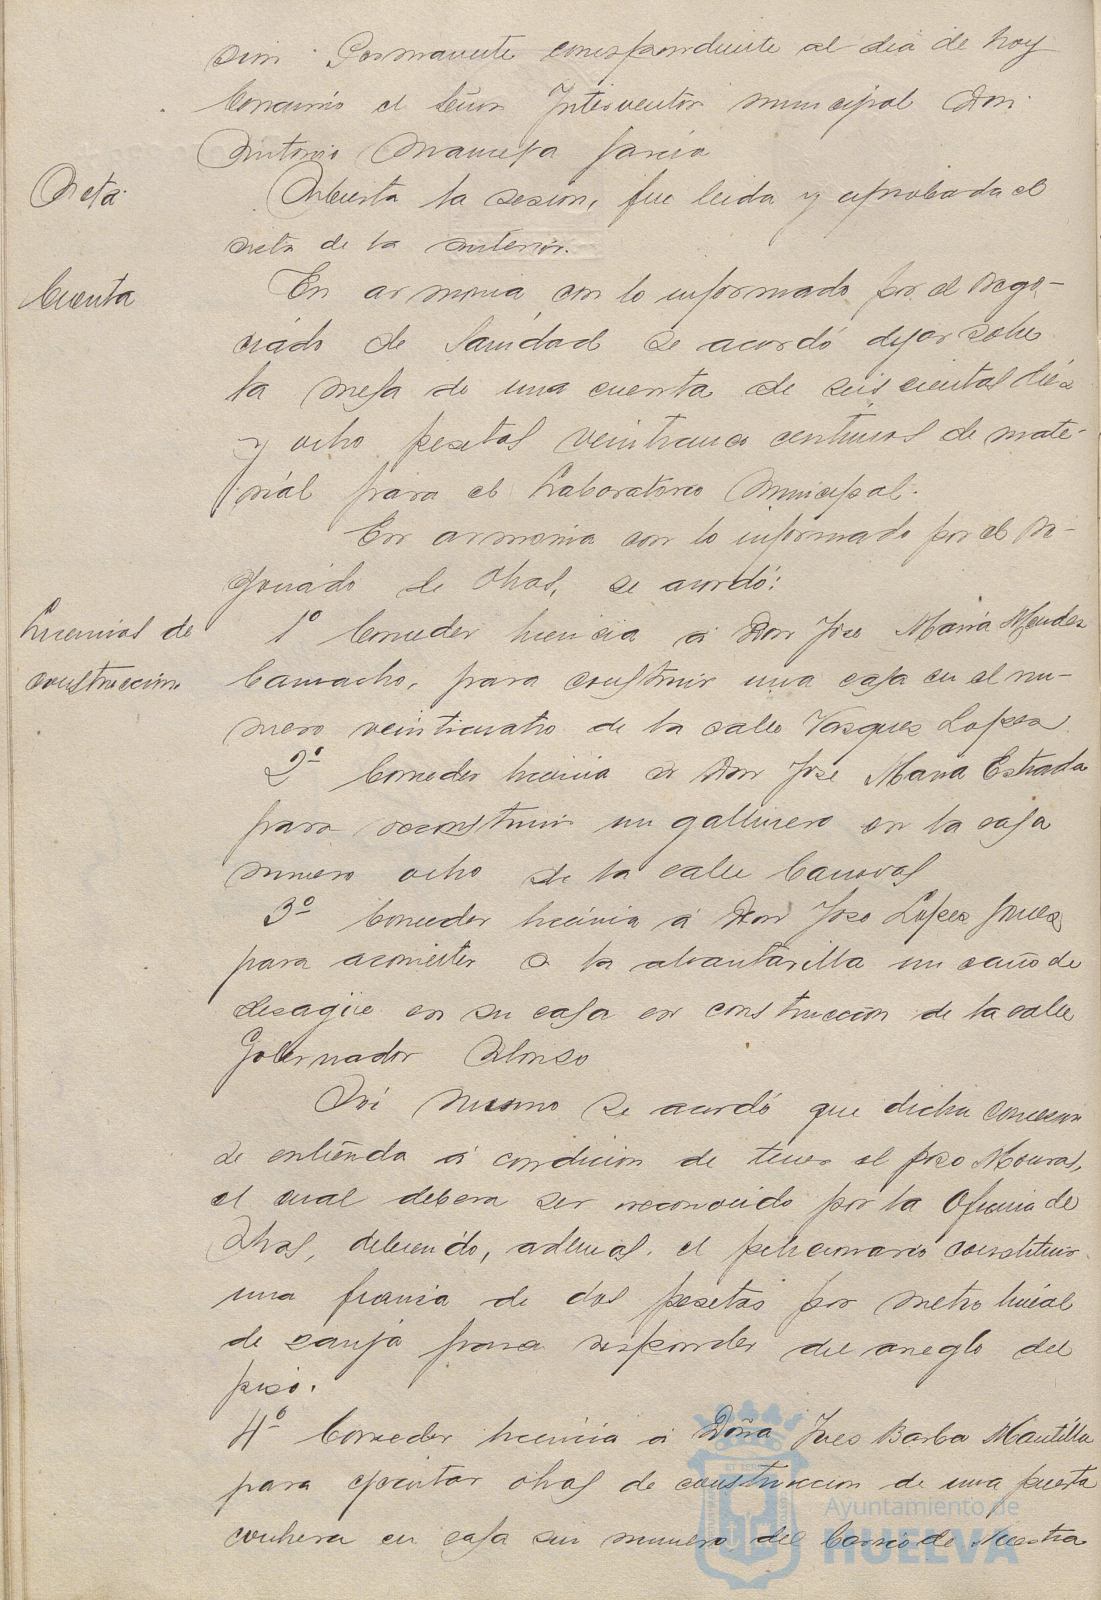 sion Permanente correspondiente al dia de hoy
Concurrio el Señor Interventor municipal Don
Antonio García
Acta
Abierta la sesion, fue leida y aprobada el
acta de la anterior.
Cuenta
En armonia con lo informado por el Nego-
ciado de Sanidad se acordó dejar sobre
la mesa de una cuenta de seiscientas diez
y ocho pesetas veinticinco centimos de mate-
rial para el Laboratorio Municipal.
En armonia con lo informado por el Ne-
gociado de Obras, se acordó:
Licencias de
construccion
1º Conceder licencia á Don Jose Maria Mendez
Camacho, para construir una casa en el nu-
mero veinticuatro de la calle Vasquez Lopez
2º Conceder licencia a Don Jose Maria Estrada
para reconstruir un gallinero en la casa
numero ocho de la calle Canovas
3º Conceder licencia á Don Jose Lopez
para acometer a la alcantarilla un caño de
desagüe en su casa en construccion de la calle
Gobernador Alonso
Asi mismo se acordó que dicha concesion
se entienda á condicion de tener el pozo Mouras,
el cual debera ser reconocido por la Oficina de
Obras, debiendo, ademas, el peticionario constituir
una fianza de dos pesetas por metro lineal
de zanja para responder del arreglo del
piso.
4º Conceder licencia a Doña Ines Barba Mantilla
para ejecutar obras de construccion de una puerta
cochera en casa sin numero del Barrio de Nuestra
Ayuntamiento de
HUELVA